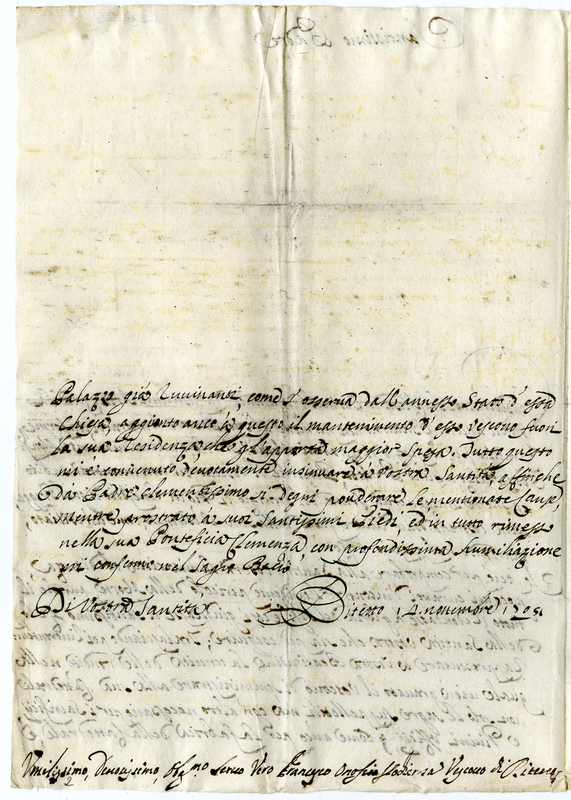 Palazzo già ruuinante, come s'osserua dall'annesso Stato d'essa
Chiesa, aggionto anco à questo il mantenimento d'esso vescouo fuori
la sua Residenza che gl'apporta maggior spesa. Tutto questo
mi è conuenuto deuotamente insinuare à Vostra Santità affinche
da Padre clementissimo si degni ponderare le mentionate Cause,
mentre prostrato à suoi Santissimi Piedi, ed in tutto rimesso
nella sua Pontificia Clemenza, con profondissima humiliazione
mi confermo nel Sagro Bacio
Di Vostra Santità Bitetto 14 novembre 1705
Vmilissimo, Deuotissimo, Obl.mo seruo Vero Francesco Orosio Vescouo di Bitetto